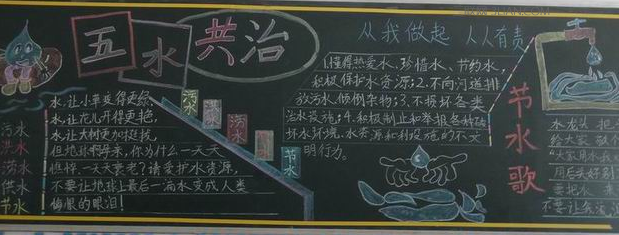 五水共治
从我做起 人人有责
污水
洪水
涝水
供水
节水
水,让小草变得更绿,
水,让花儿开得更艳,
水,让大树更加挺拔,
但地球妈妈呀,你为什么一天天
憔悴,一天天衰老?请爱护水资源,
不要让地球上最后一滴水变成人类
悔恨的眼泪!
污水
洪水
涝水
供水
节水
1.懂得热爱水、珍惜水、节约水,
积极保护水资源;2.不向河道排
放污水、倾倒杂物;3.不损坏各类
治水设施;4.积极制止和举报各种破
坏水环境、水资源和科设施的不文
明行为。
节水歌
水龙头 把
给大家 敬个
"大家用水
用后关好
要把水
不要让